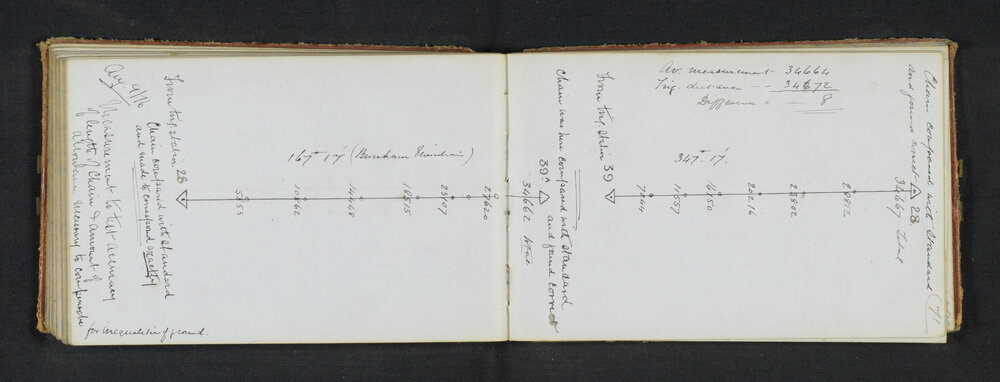 Aug 9/76 Measurement to test accuracy
of length of Chain & amount of
allowance necessary to compensate
for inequalities of ground.
From trig station 28
Chain compared with standard
and made to correspond exactly
167° 17' (Burnham Meridian)
5853
10862
14448
18515
23107
27620
34662 total
39
Chain was here compared with standard
and found correct
From trig station 39
347° 17'
7944
11557
16150
20216
23802
28812
Av. measurement - 34664
Trig. distance -- 34672
Difference = - 8
28
34667 Total
Chain compared with Standard
and found correct